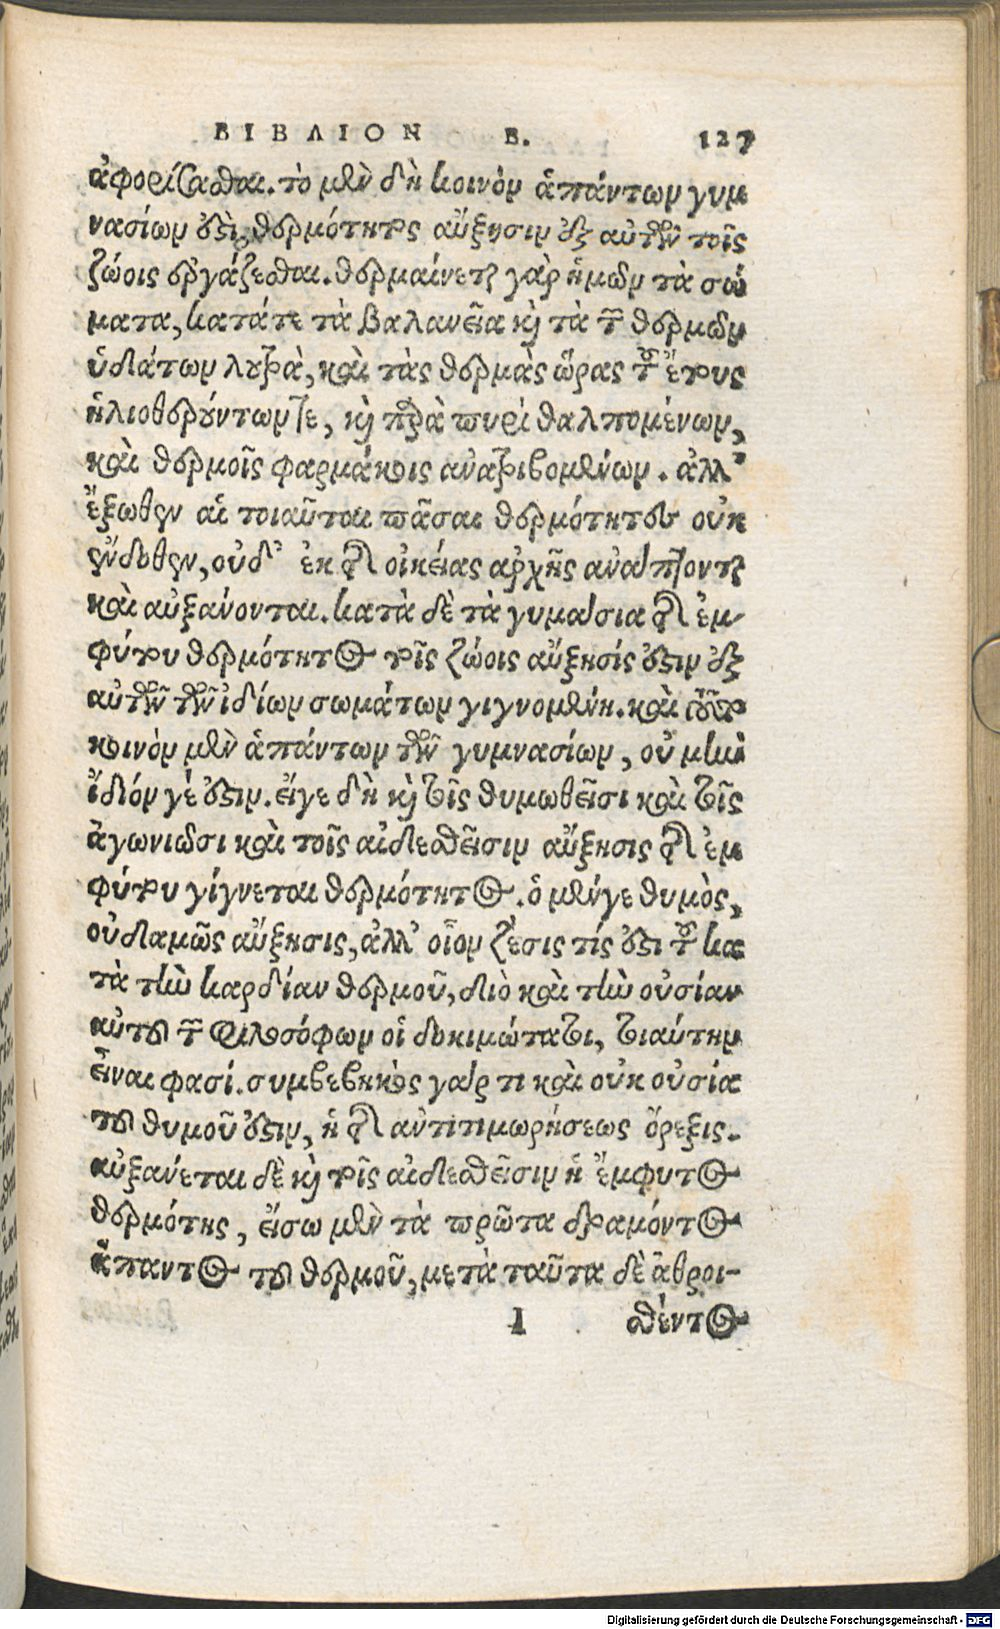 ΒΙΒΛΙΟΝ Β. 127
ἀφορίσασθαι. τὸ μὲν δὴ κοινὸν ἁπάντων γυμ
νασίων ἐστὶ, θερμότητος αὔξησιν ἐξ αὑτῶν τοῖς
ζώοις ἐργάζεσθαι. θερμαίνεται γὰρ ἡμῶν τὰ σώ
ματα, κατά τε τὰ βαλανεῖα καὶ τὰ τῶν θερμῶν
ὑδάτων λουτρὰ, καὶ τὰς θερμὰς ὥρας τοῦ ἔτους
ἡλιοθερούντων τε, καὶ παρὰ πυρὶ θαλπομένων,
καὶ θερμοῖς φαρμάκοις ἀνατριβομένων. ἀλλ'
ἔξωθεν αἱ τοιαῦται πᾶσαι θερμότητες οὐκ
ἔνδοθεν, οὐδ' ἐκ τῆς οἰκείας ἀρχῆς ἀνάπτονται
καὶ αὐξάνονται. κατὰ δὲ τὰ γυμνάσια τῆς ἐμ-
φύτου θερμότητος τοῖς ζώοις αὔξησίς ἐστιν ἐξ
αὐτῶν τῶν ἰδίων σωμάτων γιγνομένη. καὶ τοῦτο
κοινὸν μὲν ἁπάντων τῶν γυμνασίων, οὐ μὴν
ἴδιόν γέ ἐστιν. εἴγε δὴ καὶ τοῖς θυμωθεῖσι καὶ τοῖς
ἀγωνιῶσι καὶ τοῖς αἰδεσθεῖσιν αὔξησις τῆς ἐμ
φύτου γίγνεται θερμότητος. ὁ μέν γε θυμὸς,
οὐδαμῶς αὔξησις, ἀλλ' οἷον ζέσις τίς ἐστι τοῦ κα
τὰ τὴν καρδίαν θερμοῦ, διὸ καὶ τὴν οὐσίαν
αὐτοῦ τῶν φιλοσόφων οἱ δοκιμώτατοι, τοιαύτην
εἶναι φασί. συμβεβηκὸς γάρ τι καὶ οὐκ οὐσία
τοῦ θυμοῦ ἐστιν, ἡ τῆς ἀντιτιμωρήσεως ὄρεξις.
αὐξάνεται δὲ καὶ τοῖς αἰδεσθεῖσιν ἡ ἔμφυτος
θερμότης, εἴσω μὲν τὰ πρῶτα δραμόντος
ἅπαντος τοῦ θερμοῦ, μετὰ ταῦτα δὲ ἀθροι-
I σθέντος
Digitalisierung gefördert durch die Deutsche Forschungsgemeinschaft - DFG